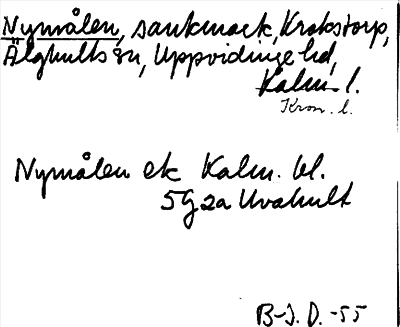 Nymålen, sankmark, Krokstorp,
Älghults sn, Uppvidinge hd,
Kalm. l.
Kron. l.
Nymålen ek Kalm. bl.
5G2a Uvahult
B-J. D. -55